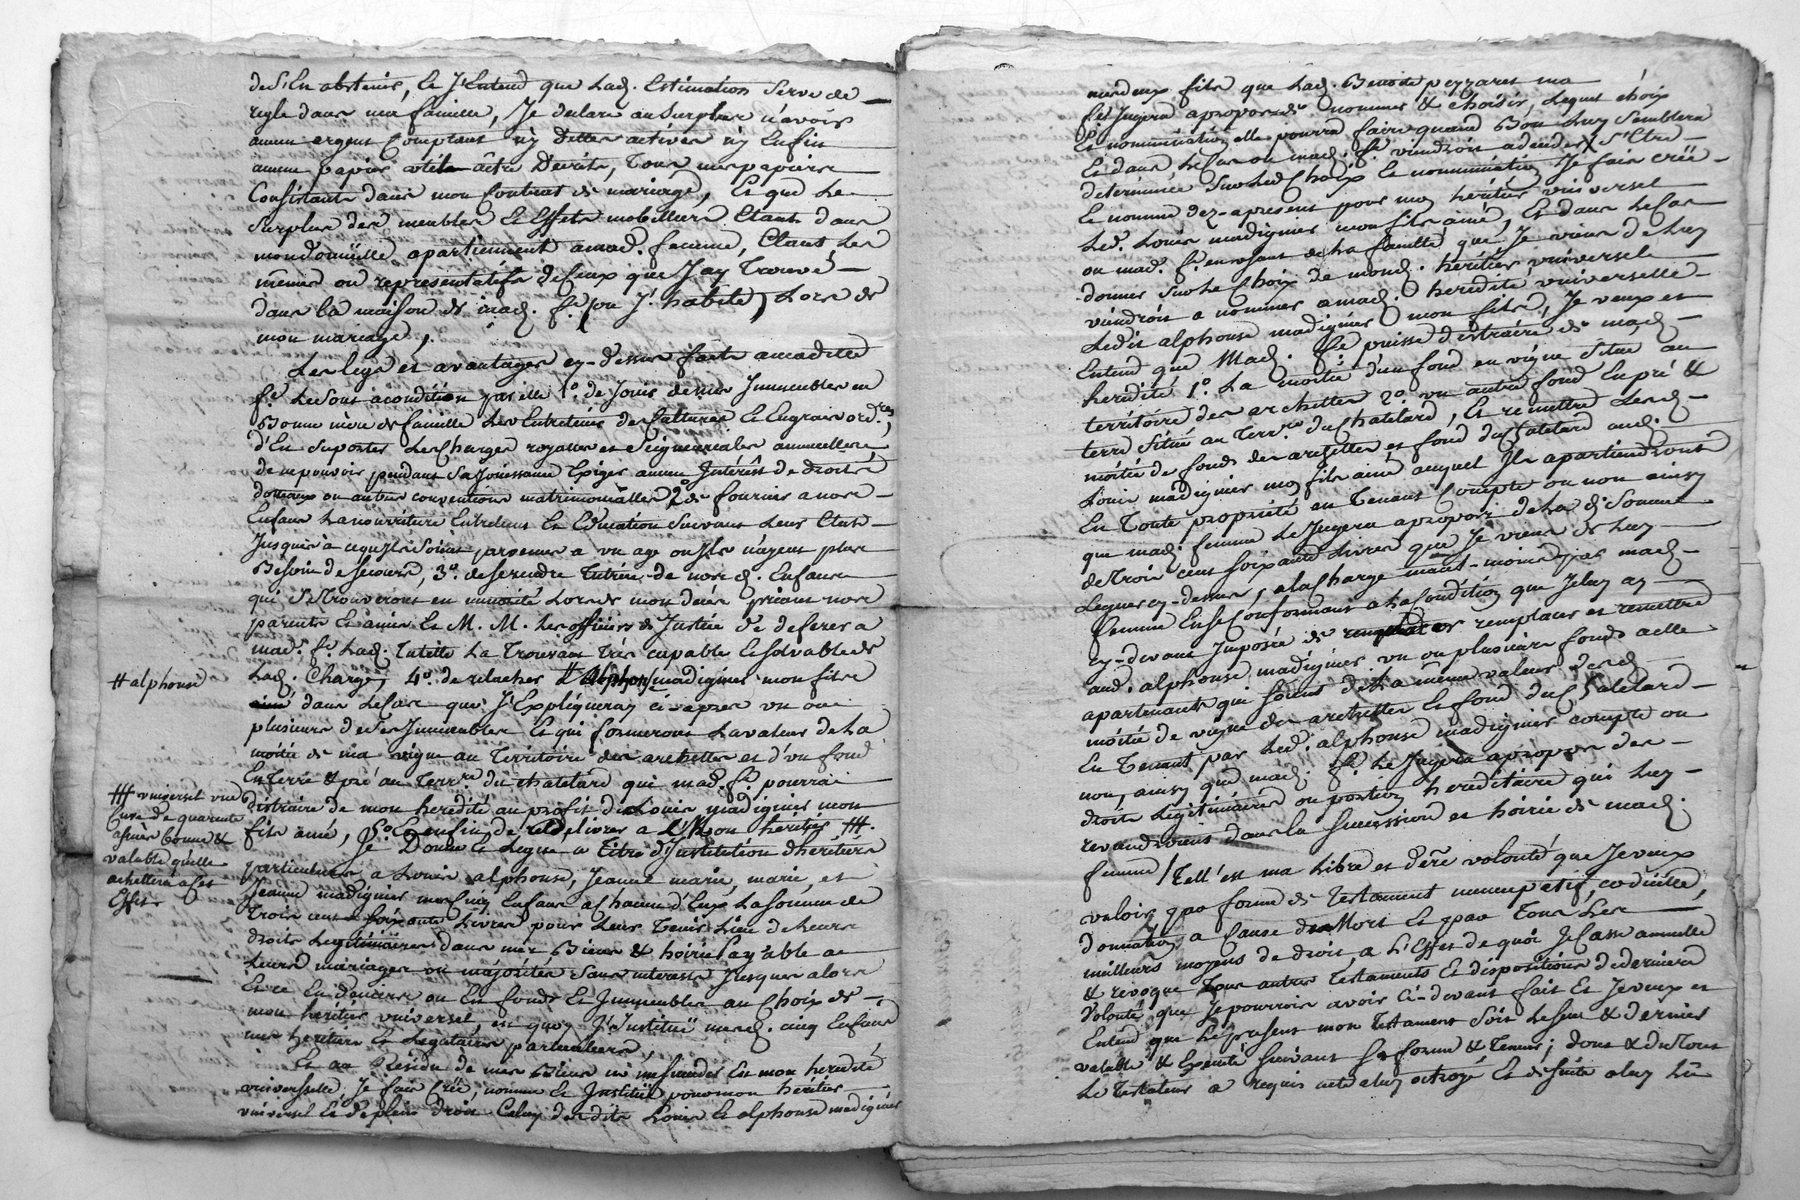 de s'En abstenir, Et J'Entend que Lad. Estimation Serve de
regle dans ma famille, Je declare au Surplus n'avoir
aucun argent Comptant ny Dettes actives ny Enfin
aucun papier utile Decrits, Tous mes papiers
Consistants dans mon Contrat de mariage, Et que Le
Surplus des meubles Et Effets mobilliers Etants dans
mondomicille apartiennent amad. femme, Etants Les
mêmes ou representatifs de Ceux que J'ay Trouvé
dans la maison de mad. fe. (ou J'habite) Lors de
mon mariage.
Les legs et avantages cy-dessus faits amaditte
fe. Le sont acondition par elle 1o. de Jouir de mes Immeubles en
Bonne mere de famille Les Entretenir de Cultures Et Engrais ord.res
d'En Suporter Les Charges royalles et Seigneuriales annuelles
de ne pouvoir pendant Sa Jouissance Exiger aucun Intérêt de droits
dotteaux ou autres conventions matrimonialles, 2o de fournir a nos
Enfans La nourriture Entretient Et Education Suivant Leur Etat
Jusques à ce qu'Ils Soient parvenus a un age ou Ils n'ayent plus
Besoin de Secours, 3o. de Se rendre Tutrice de nos d. Enfans
qui Se trouveront en minorité Lors de mon deces priant nos
parents Et amis Et M. M. Les officiers de Justice de deferer a
mad. fe. Lad. Tutelle La Trouvant très capable Et Solvable de
Lad. Charge, 4o. de relacher # madignier mon fils
# alphonse
dans Le Cas que J'Expliqueray ci-après un ou
plusieurs de Ses Immeubles Et qui formeront La valeur de La
moitié de ma vigne au Territoire des archettes et d'un fond
En Terre & pré au Terr.re du chatelard que mad. fe. pourra
distraire de mon heredité au profit de Louis madignier mon
fils ainé, 5o Et enfin de delivrer a mon héritier ###.
### universel une
Cuve de quarante
asnées Bonne &
valable qu'elle
achettera a Cet
Effet
Je Donne Et Legue a titre d'Institution d'heritiers
particuliers a Louis, alphonse, Jeanne marie, marie, et
Jeanne madignier mes cinq Enfans à chacun d'Eux La Somme de
Trois cent Soixante Livres pour Leur Tenir Lieu de Leurs
droits Legitimaires dans mes Biens & hoirie payable a
Leurs mariages ou majorités Sans interests Jusques alors
Et ce En deniers ou En fonds Et Immeubles au Choix de
mon heritier universel, en quoy J'Institue mesd. cinq Enfans
mes heritiers Et Legataires particuliers,
Et au Residu de mes Biens Et mon heredité
universelle Je fais Crée nomme Et Institue pour mon heritier
universel Et de plein droit Celuy desdits Louis Et alphonse madignier
mes deux fils que Lad. Benoite peyzaret ma
fe. Jugera apropos de nommer & choisir, Lequel choix
Et nomination elle pourra faire quand Bon Luy Semblera
Et dans Le Cas ou mad. fe. viendroit a deceder S'Etre
determinée Sur Led. Choix Et nomination Je fais créé
Et nomme dez-apresent pour mon heritier universel
Led. Louis madignier mon fils ainé, Et dans Le Cas
ou mad. fe. en usant de La faculté que Je viens de Luy
donner Sur Le Choix de mond. heritier universel
viendroit a nommer a mad. heredité universelle
Ledit alphonse madignier mon fils, Je veux et
Entend que Mad. fe. puisse distraire de mad.
heredité 1o. La moitié d'un fond en vigne Situé au
territoire des archettes 2o. un autre fond En pré &
terre Situé au Terr.re du Chatelard, Et remettre Lesd.
moitié de fonds des archettes et fond du Chatelard aud.
Louis madignier mon fils ainé auquel Ils apartiendront
En Toute proprieté en Tenant Compte ou non ainsy
que mad. femme Le Jugera apropos de La d. Somme
de Trois cent Soixante Livres que Je viens de Luy
Leguer cy-dessus, a La Charge neant-moins par mad.
femme En Se Conformant a La Condition que Je luy ay
cy-devant Imposée de remplacer et remettre
aud. alphonse madignier un ou plusieurs fonds a elle
apartenants qui Soient de La même valeur desd.
moitié de vigne des archettes Et fond du Chatelard
En Tenant par Led. alphonse madignier compte ou
non, ainsy que mad. fe. Le Jugera apropos des
droits Legitimaires ou portion hereditaire qui Luy
revandroient dans la Succession et hoirie de mad.
femme / Tell'est ma Libre et d.re volonté que Je veux
valoir par forme de Testament nuncupatif, codicille,
donnation a Cause de Mort Et par Tous Les
meilleurs moyens de droit, a L'Effet de quoi Je Casse annulle
& revoque Tous autres Testaments Et dispositions de derniere
Volonté que Je pourrois avoir Ci-devant fait Et Je veux et
Entend que Le present mon Testament Soit Le Seul & dernier
valable & Execute Suivant Sa forme & Teneur; dont & du Tout
Le Testateur a requis acte a luy octroyé Et de Suite a luy Lû